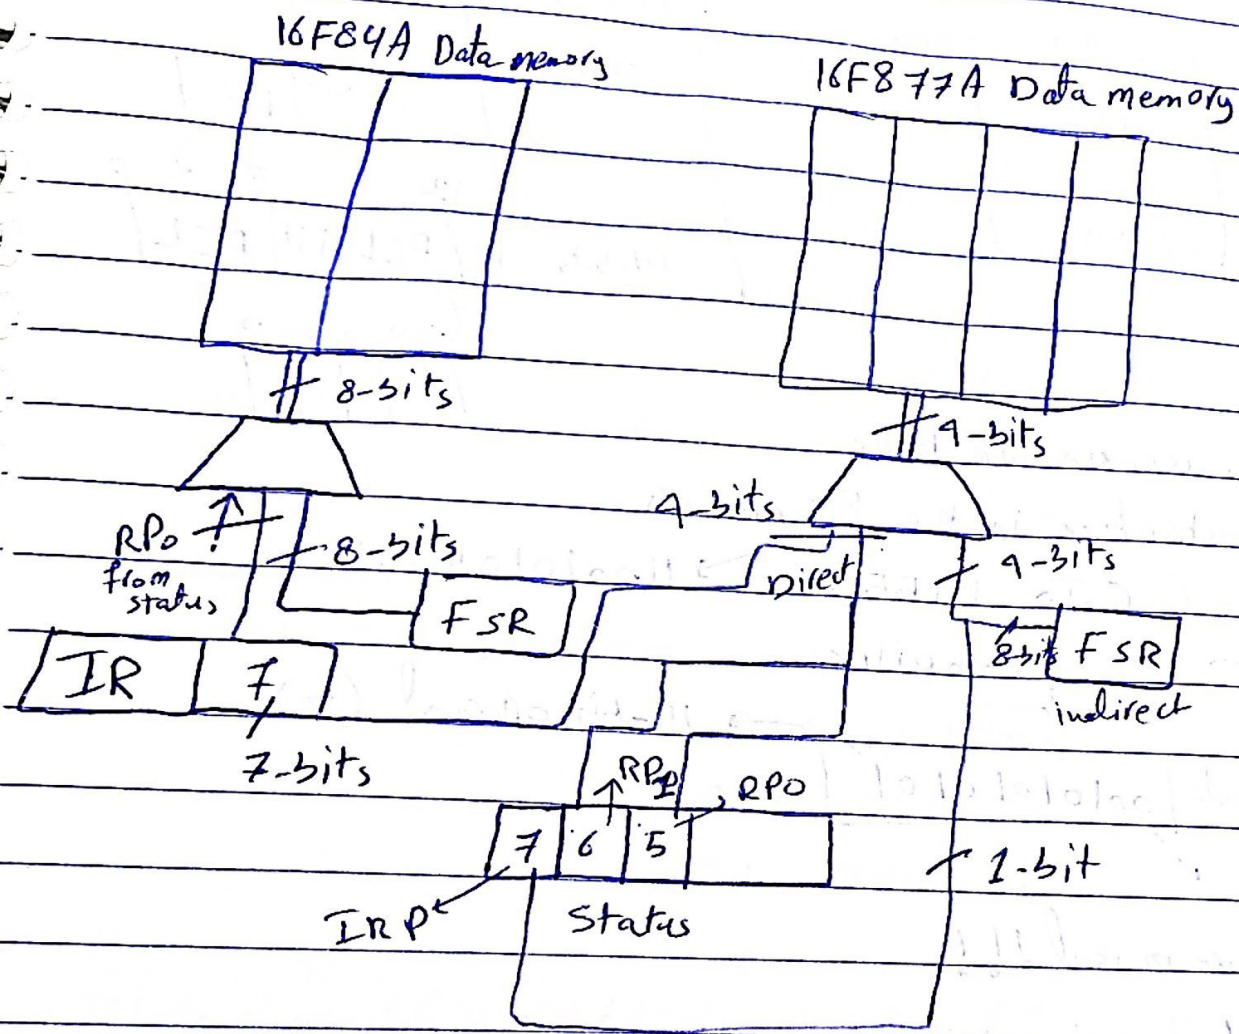 16F84A Data memory
16F877A Data memory
8-bits
9-bits
9-bits
RP0
from
status
8-bits
Direct
9-bits
FSR
8-bit
FSR
indirect
IR
7
7-bits
RP1
RP0
7
6
5
1-bit
IRP
Status